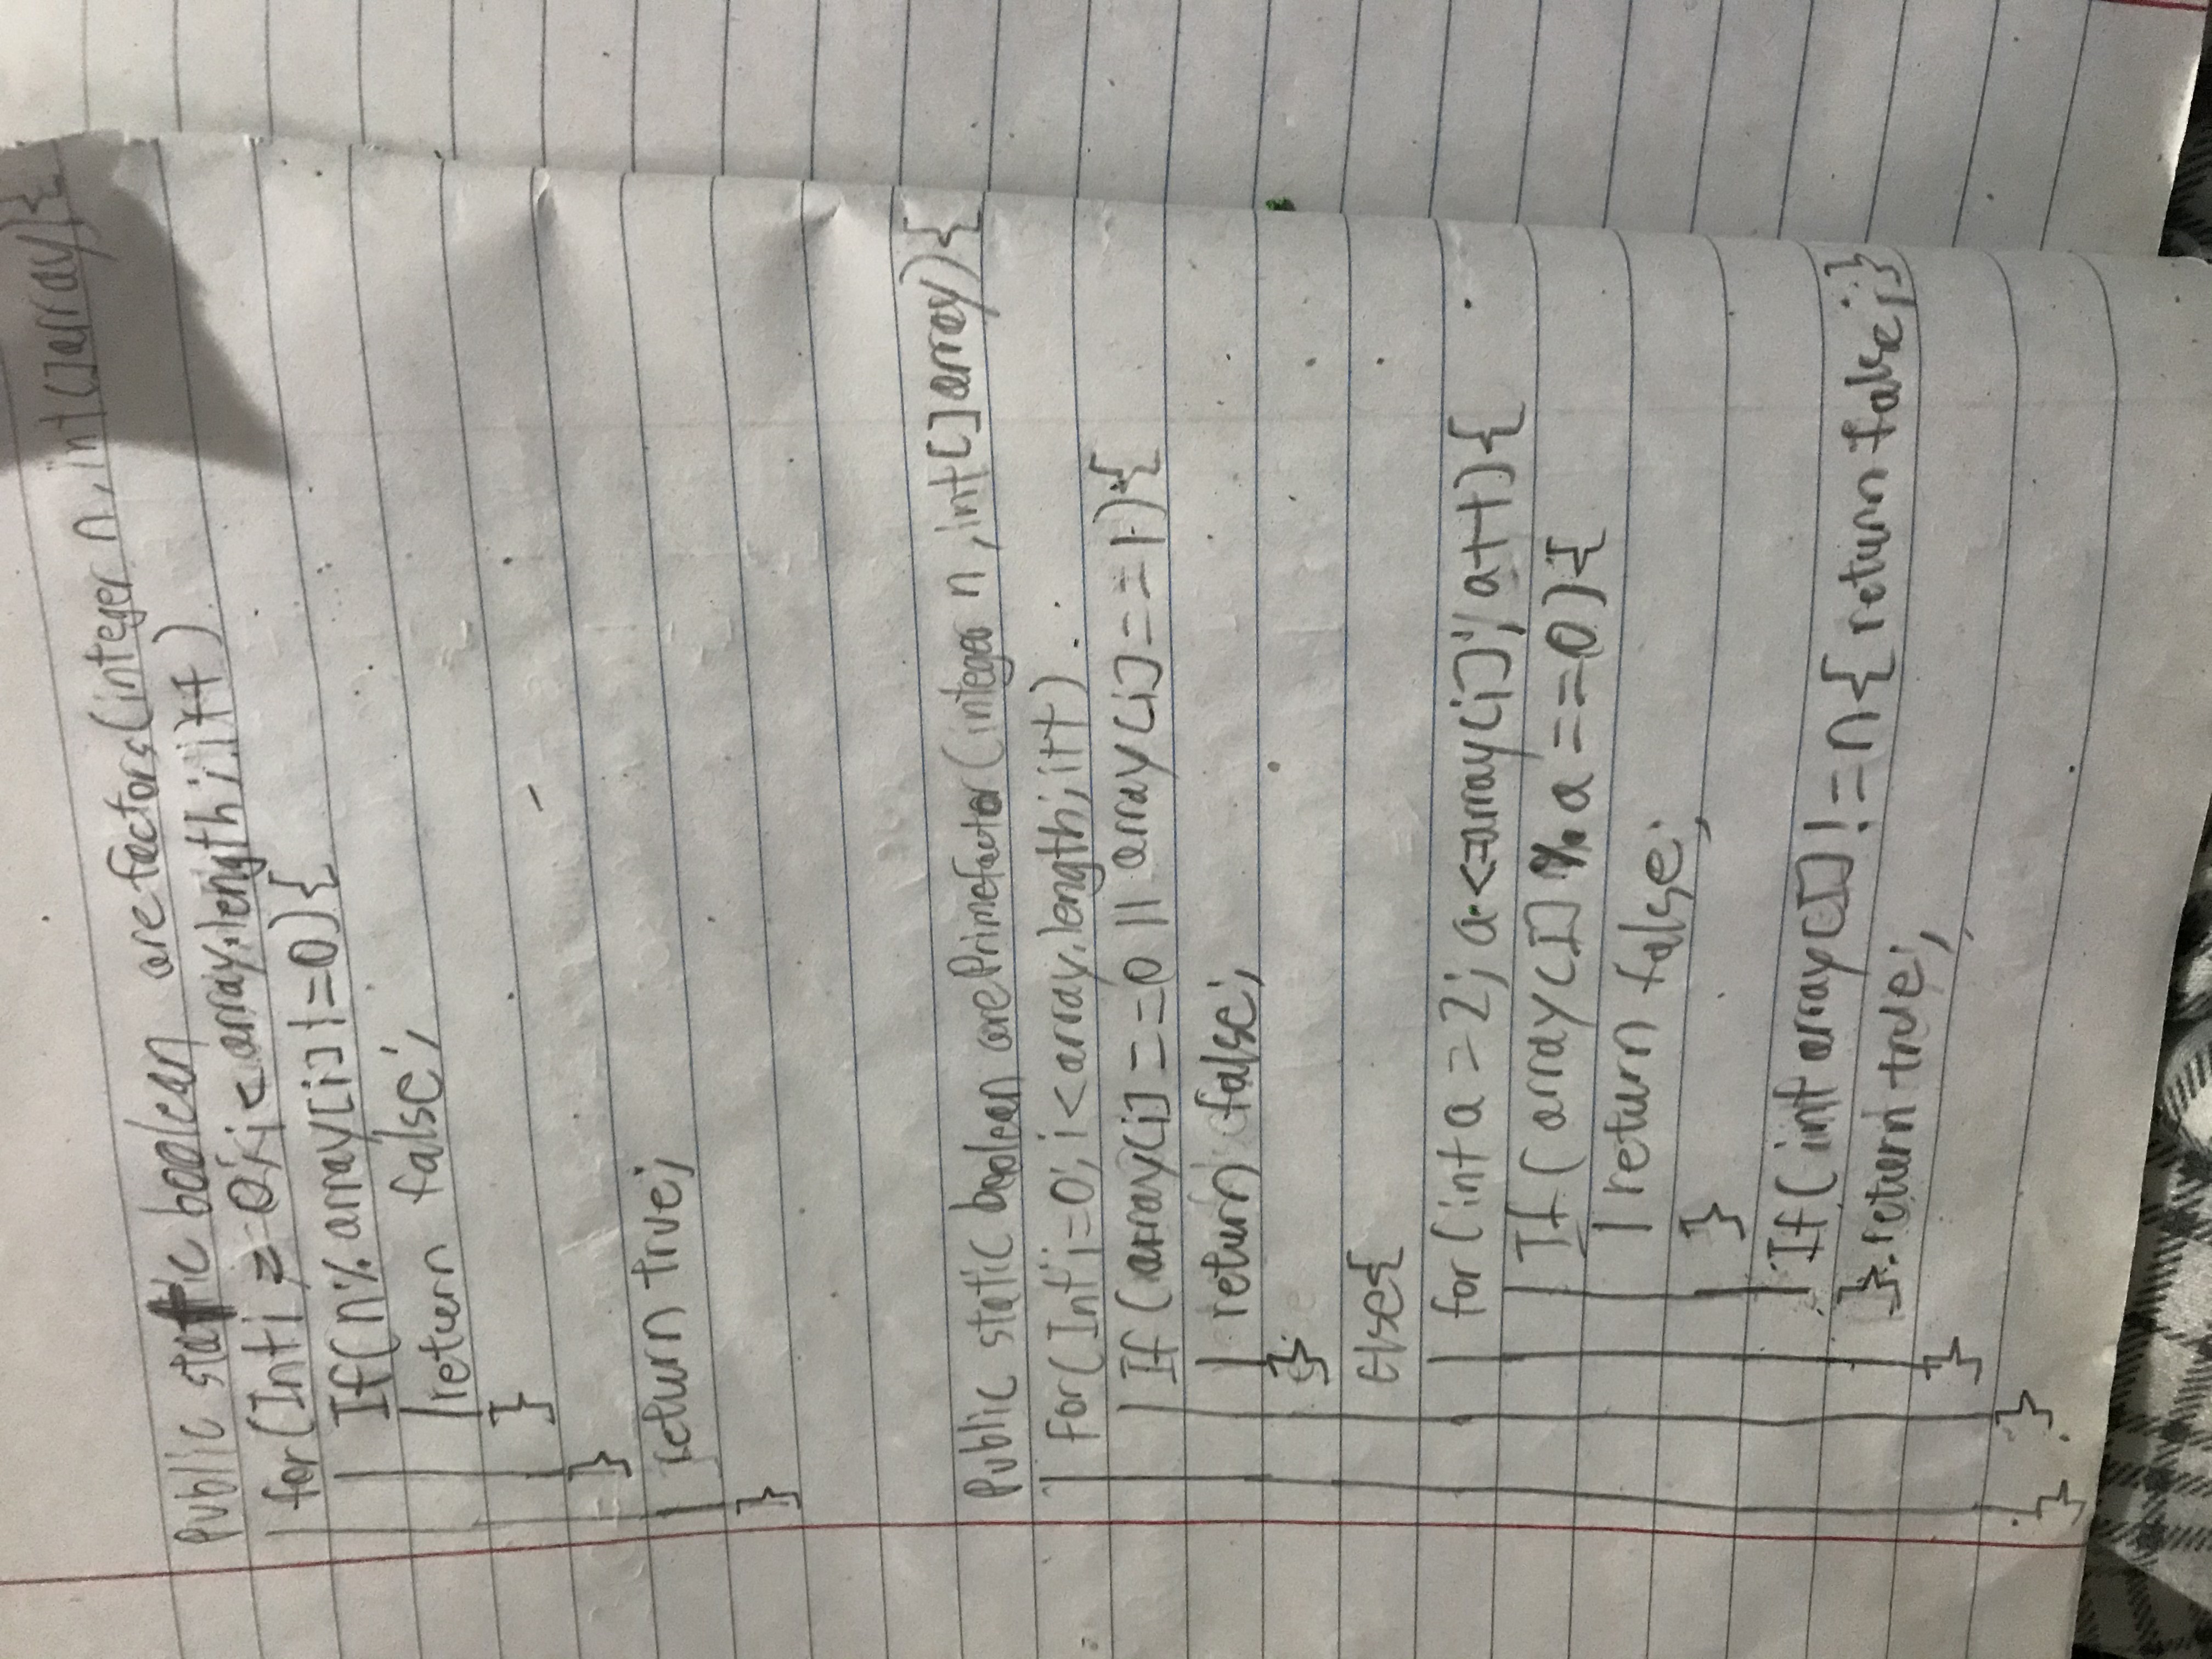 Public static boolean arefactors(integer n, int[]array){
for(Int i = 0; i < array.length; i++)
If(n% array[i] != 0){
return false;
}
}
return true;
}
Public static boolean arePrimefactor(integer n, int[] array){
For(Int i=0; i<array.length; i++)
If (array[i]==0 || array[i]==1){
return false;
}
Else{
for(int a = 2; a<=array[i]; a++){
If(array[I] % a ==0){
return false;
}
If(int array[I] != n{ return false;}
} return true;
}
}
}